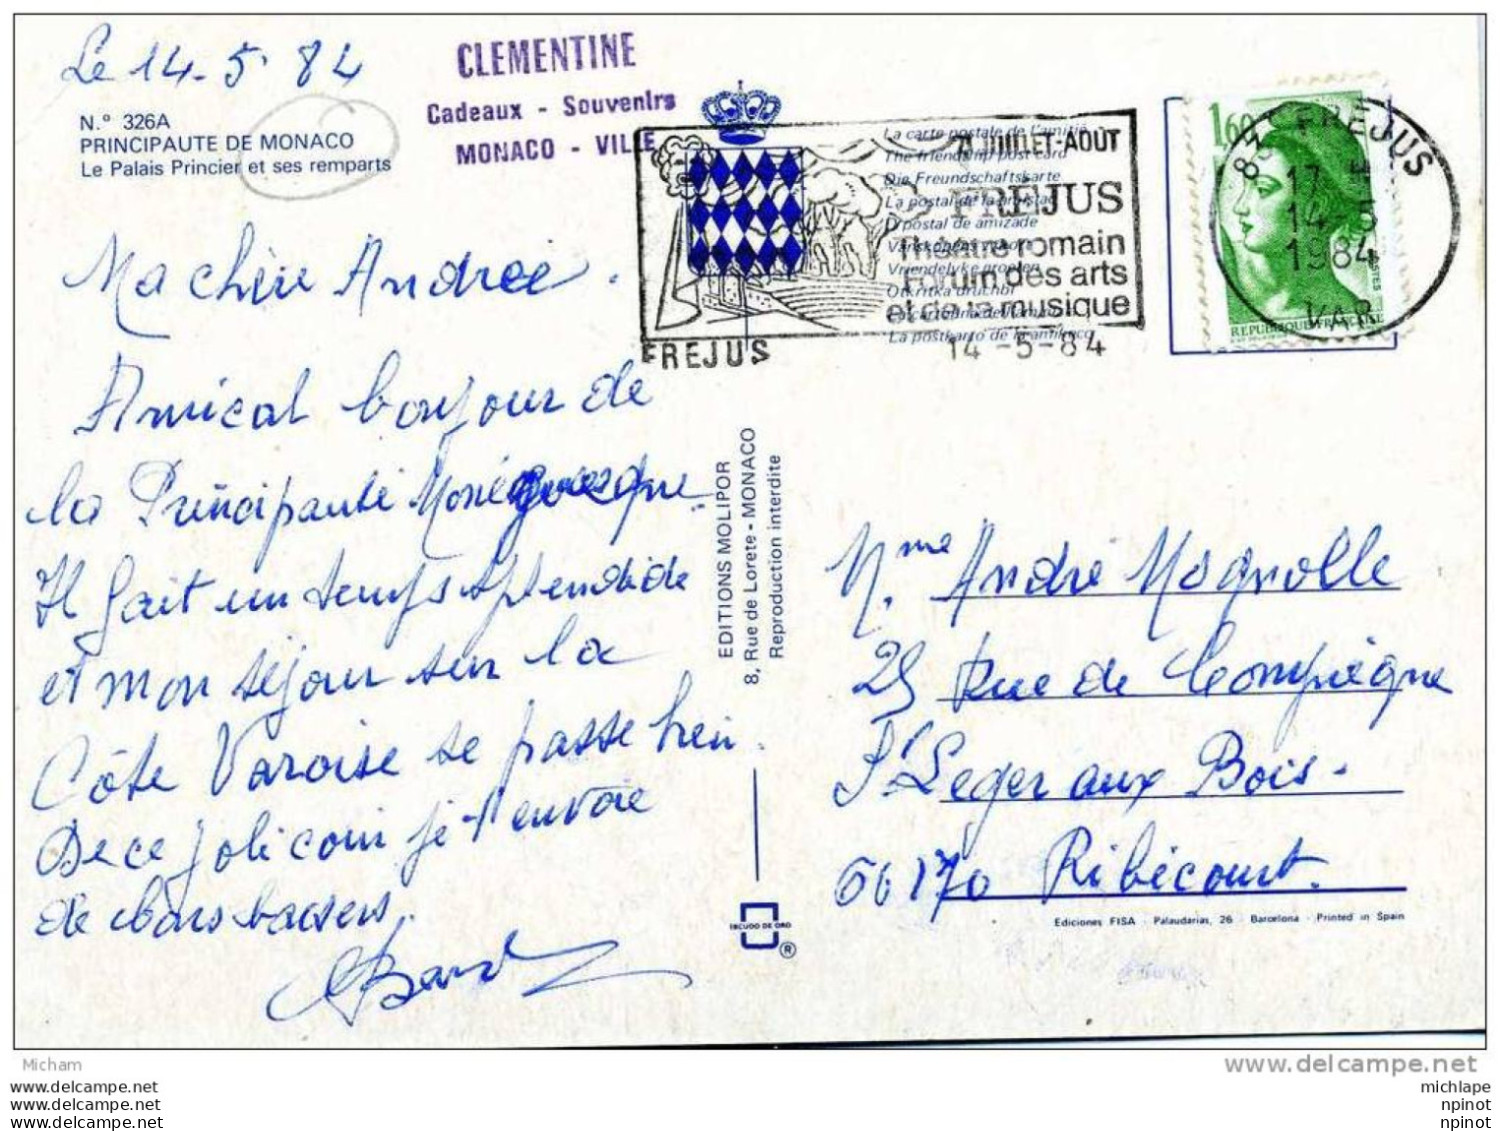 Le 14-5-84
N.° 326A
PRINCIPAUTE DE MONACO
Le Palais Princier et ses remparts
CLEMENTINE
Cadeaux - Souvenirs
MONACO - VILLE
Ma chère Andrée.
Amical bonjour de
la Principauté Monégasque.
Il fait un temps splendide
et mon séjour sur la
Côte Varoise se passe bien.
De ce joli coin je t'envoie
de bons baisers.
EDITIONS MOLIPOR
8, Rue de Lorete - MONACO
Reproduction interdite
ESCUDO DE ORO
®
La carte postale de l'amitié
The friendship post card
Die Freundschaftskarte
La postal de la amistad
D postal de amizade
Vriendelyke groeten
Otkritka druchbi
La postkarto de la amikeco
JUILLET-AOUT
FRÉJUS
Théâtre romain
Forum des arts
et de la musique
FREJUS
14-5-84
1,60
REPUBLIQUE FRANÇAISE
POSTES
83 FREJUS
17 H
14-5
1984
VAR
Mme André Magnolle
25 Rue de Compiègne
St Leger aux Bois.
60170 Ribécourt.
Ediciones FISA - Palaudarias, 26 - Barcelona - Printed in Spain
Micham
www.delcampe.com
www.delcampe.com
www.delcampe.com
www.delcampe.net
michlape
npinot
npinot